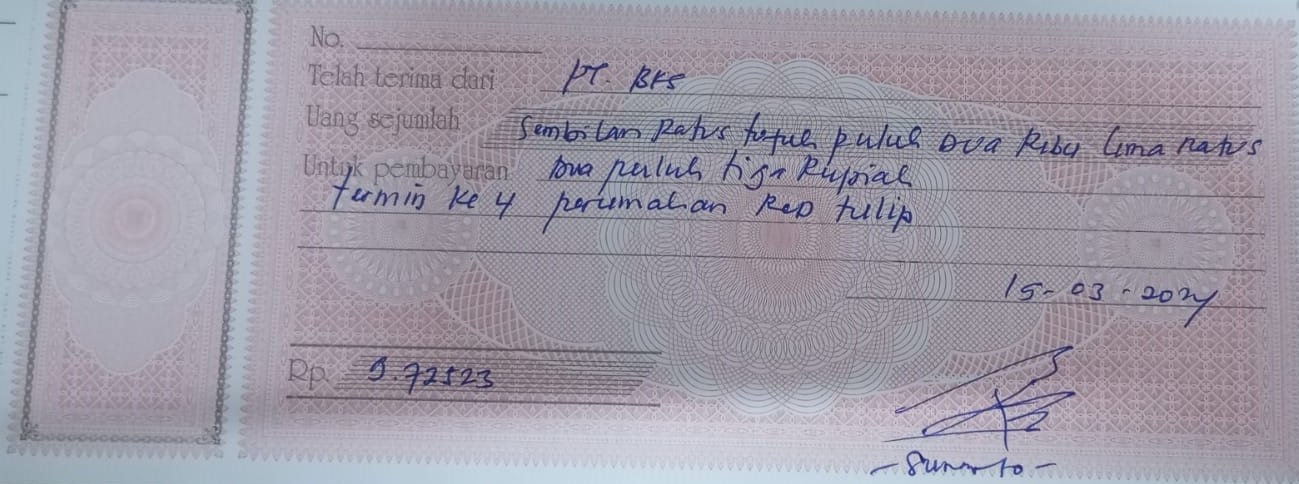 No.
Telah terima dari PT. BKS
Uang sejumlah Sembilan Ratus tujuh puluh Dua Ribu lima Ratus
Untuk pembayaran Dua puluh tiga Rupiah
termin ke 4 perumahan Red tulip
15-03-2024
Rp. 9.72523
- Sunarto -